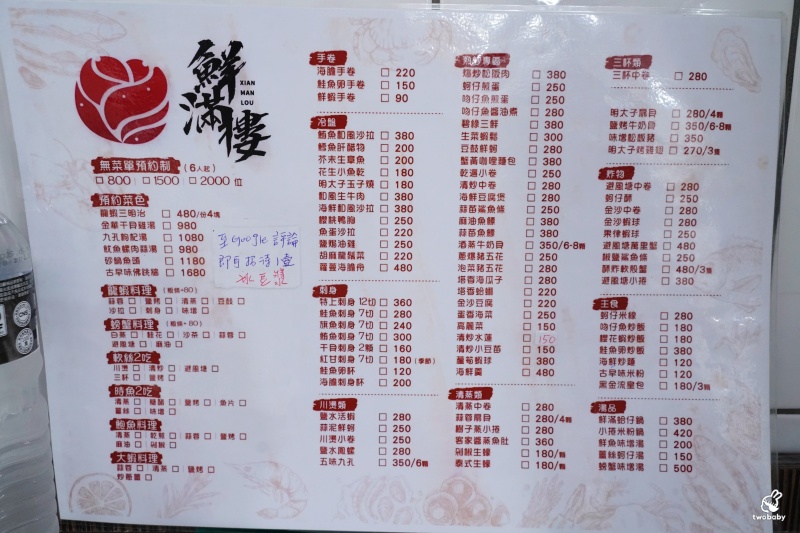 鮮滿樓
XIAN
MAN
LOU
無菜單預約制 (6人起)
□800 □1500 □2000 位
預約菜色
龍蝦三明治 □ 480/份4塊
金華干貝雞湯 □ 980
九孔枸杞湯 □ 1080
魷魚螺肉蒜湯 □ 980
砂鍋魚頭 □ 1180
古早味佛跳牆 □ 1680
至Google評論
即可招待1壺
冰豆漿
龍蝦料理
蒜蓉 □ 鹽烤 □ 清蒸 □ 豆豉 □
沙拉 □ 刺身 □ 味增 □
螃蟹料理
清蒸 □ 鮭花 □ 沙茶 □ 蒜蓉 □
避風塘 □ 麻油 □
軟絲2吃
川燙 □ 清炒 □ 避風塘 □
三軒 □ 鹽烤 □
時魚2吃
清蒸 □ 鹽烤 □ 魚片 □
薑絲 □ 味增 □
鮑魚料理
清蒸 □ 乾煎 □ 蒜蓉 □ 鹽烤 □
麻油 □ 剁椒 □
大蝦料理
蒜蓉 □ 清蒸 □ 鹽烤 □
炒胞蛋 □
手卷
海膽手卷 □ 220
鮭魚卵手卷 □ 150
鮮蝦手卷 □ 90
冷盤
鮪魚和風沙拉 □ 380
鱈魚肝醋物 □ 200
芥末生章魚 □ 200
花生小魚乾 □ 180
明太子玉子燒 □ 180
和風生牛肉 □ 380
海鮮和風沙拉 □ 380
櫻桃鴨胸 □ 250
魚蛋沙拉 □ 220
鹽焗油雞 □ 250
胡麻龍鬚菜 □ 220
蘿蔓海膽舟 □ 480
刺身
特上刺身 12切 □ 360
鮭魚刺身 7切 □ 280
旗魚刺身 7切 □ 240
鮪魚刺身 7切 □ 300
干貝刺身 2顆 □ 160
紅甘刺身 7切 □ 180 (季節)
鮭魚卵杯 □ 120
海膽刺身杯 □ 200
川燙類
鹽水活蝦 □ 280
蒜泥鮮蚵 □ 250
川燙小卷 □ 250
鹽水鳳螺 □ 280
五味九孔 □ 350/6顆
熱炒專區
爆炒松阪肉 □ 380
蚵仔煎蛋 □ 250
吻仔魚煎蛋 □ 250
吻仔魚醬油煮 □ 280
碧綠三鮮 □ 380
生菜蝦鬆 □ 300
豆豉鮮蚵 □ 250
蟹黃咖哩麵包 □ 380
乾逼小卷 □ 250
清炒中卷 □ 280
海鮮豆腐煲 □ 280
蒜苗鯊魚條 □ 280
麻油魚鰾 □ 280
蒜苗魚鰾 □ 280
酒蒸牛奶貝 □ 350/6-8顆
蔥爆五花 □ 220
泡菜豬五花 □ 220
塔香海瓜子 □ 280
塔香蛤蠣 □ 220
金沙豆腐 □ 220
蛋香海菜 □ 250
高麗菜 □ 150
清炒水蓮 □ 150
清炒小豆苗 □ 150
葡萄蝦球 □ 380
海鮮羹 □ 480
清蒸類
清蒸中卷 □ 280
蒜蓉扇貝 □ 280/4顆
樹子蒸小捲 □ 280
客家醬蒸魚肚 □ 360
剁椒生蠔 □ 180/顆
泰式生蠔 □ 180/顆
三杯類
三杯中卷 □ 280
明太子扇貝 □ 280/4顆
鹽烤牛奶貝 □ 350/6-8顆
味增松阪豬 □ 350
明太子烤雞翅 □ 270/3隻
炸物
避風塘中卷 □ 280
蚵仔酥 □ 280
金沙中卷 □ 280
金沙蝦球 □ 380
果律蝦球 □ 380
避風塘萬里蟹 □ 480
椒鹽鯊魚條 □ 250
酥炸軟殼蟹 □ 480/3隻
避風塘小捲 □ 380
主食
蚵仔米線 □ 280
吻仔魚炒飯 □ 180
櫻花蝦炒飯 □ 180
鮭魚卵炒飯 □ 380
海鮮炒麵 □ 120
古早味米粉 □ 120
黑金流皇包 □ 180/3顆
湯品
鮮滿蛤仔鍋 □ 380
小捲米粉鍋 □ 420
鮮魚味增湯 □ 200
薑絲蚵仔湯 □ 200
螃蟹味增湯 □ 500
twobaby